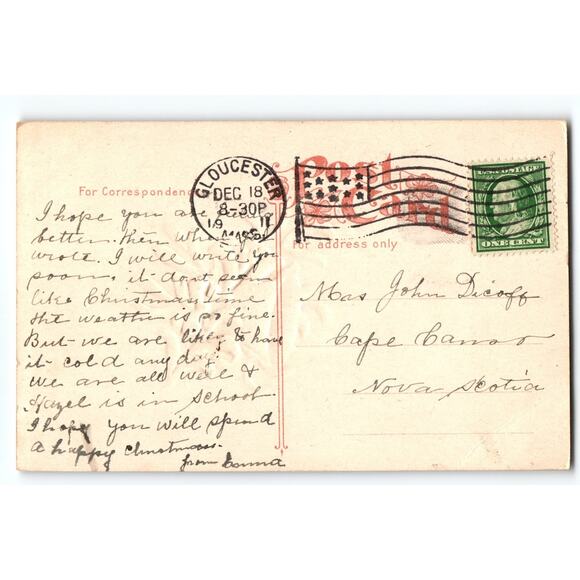 Post
Card
GLOUCESTER
DEC 18
8-30P
19 11
MASS.
U.S. POSTAGE
ONE CENT
For Correspondence
For address only
I hope you are
better. then when you
wrote. I will write you
soon. it dont seem
like Christmas time
the weather is so fine.
But we are likely to have
it cold any day.
we are all well &
Hazel is in school
I hope you will spend
a happy christmas.
from
Mas John Dicoff
Cape Canso
Nova Scotia